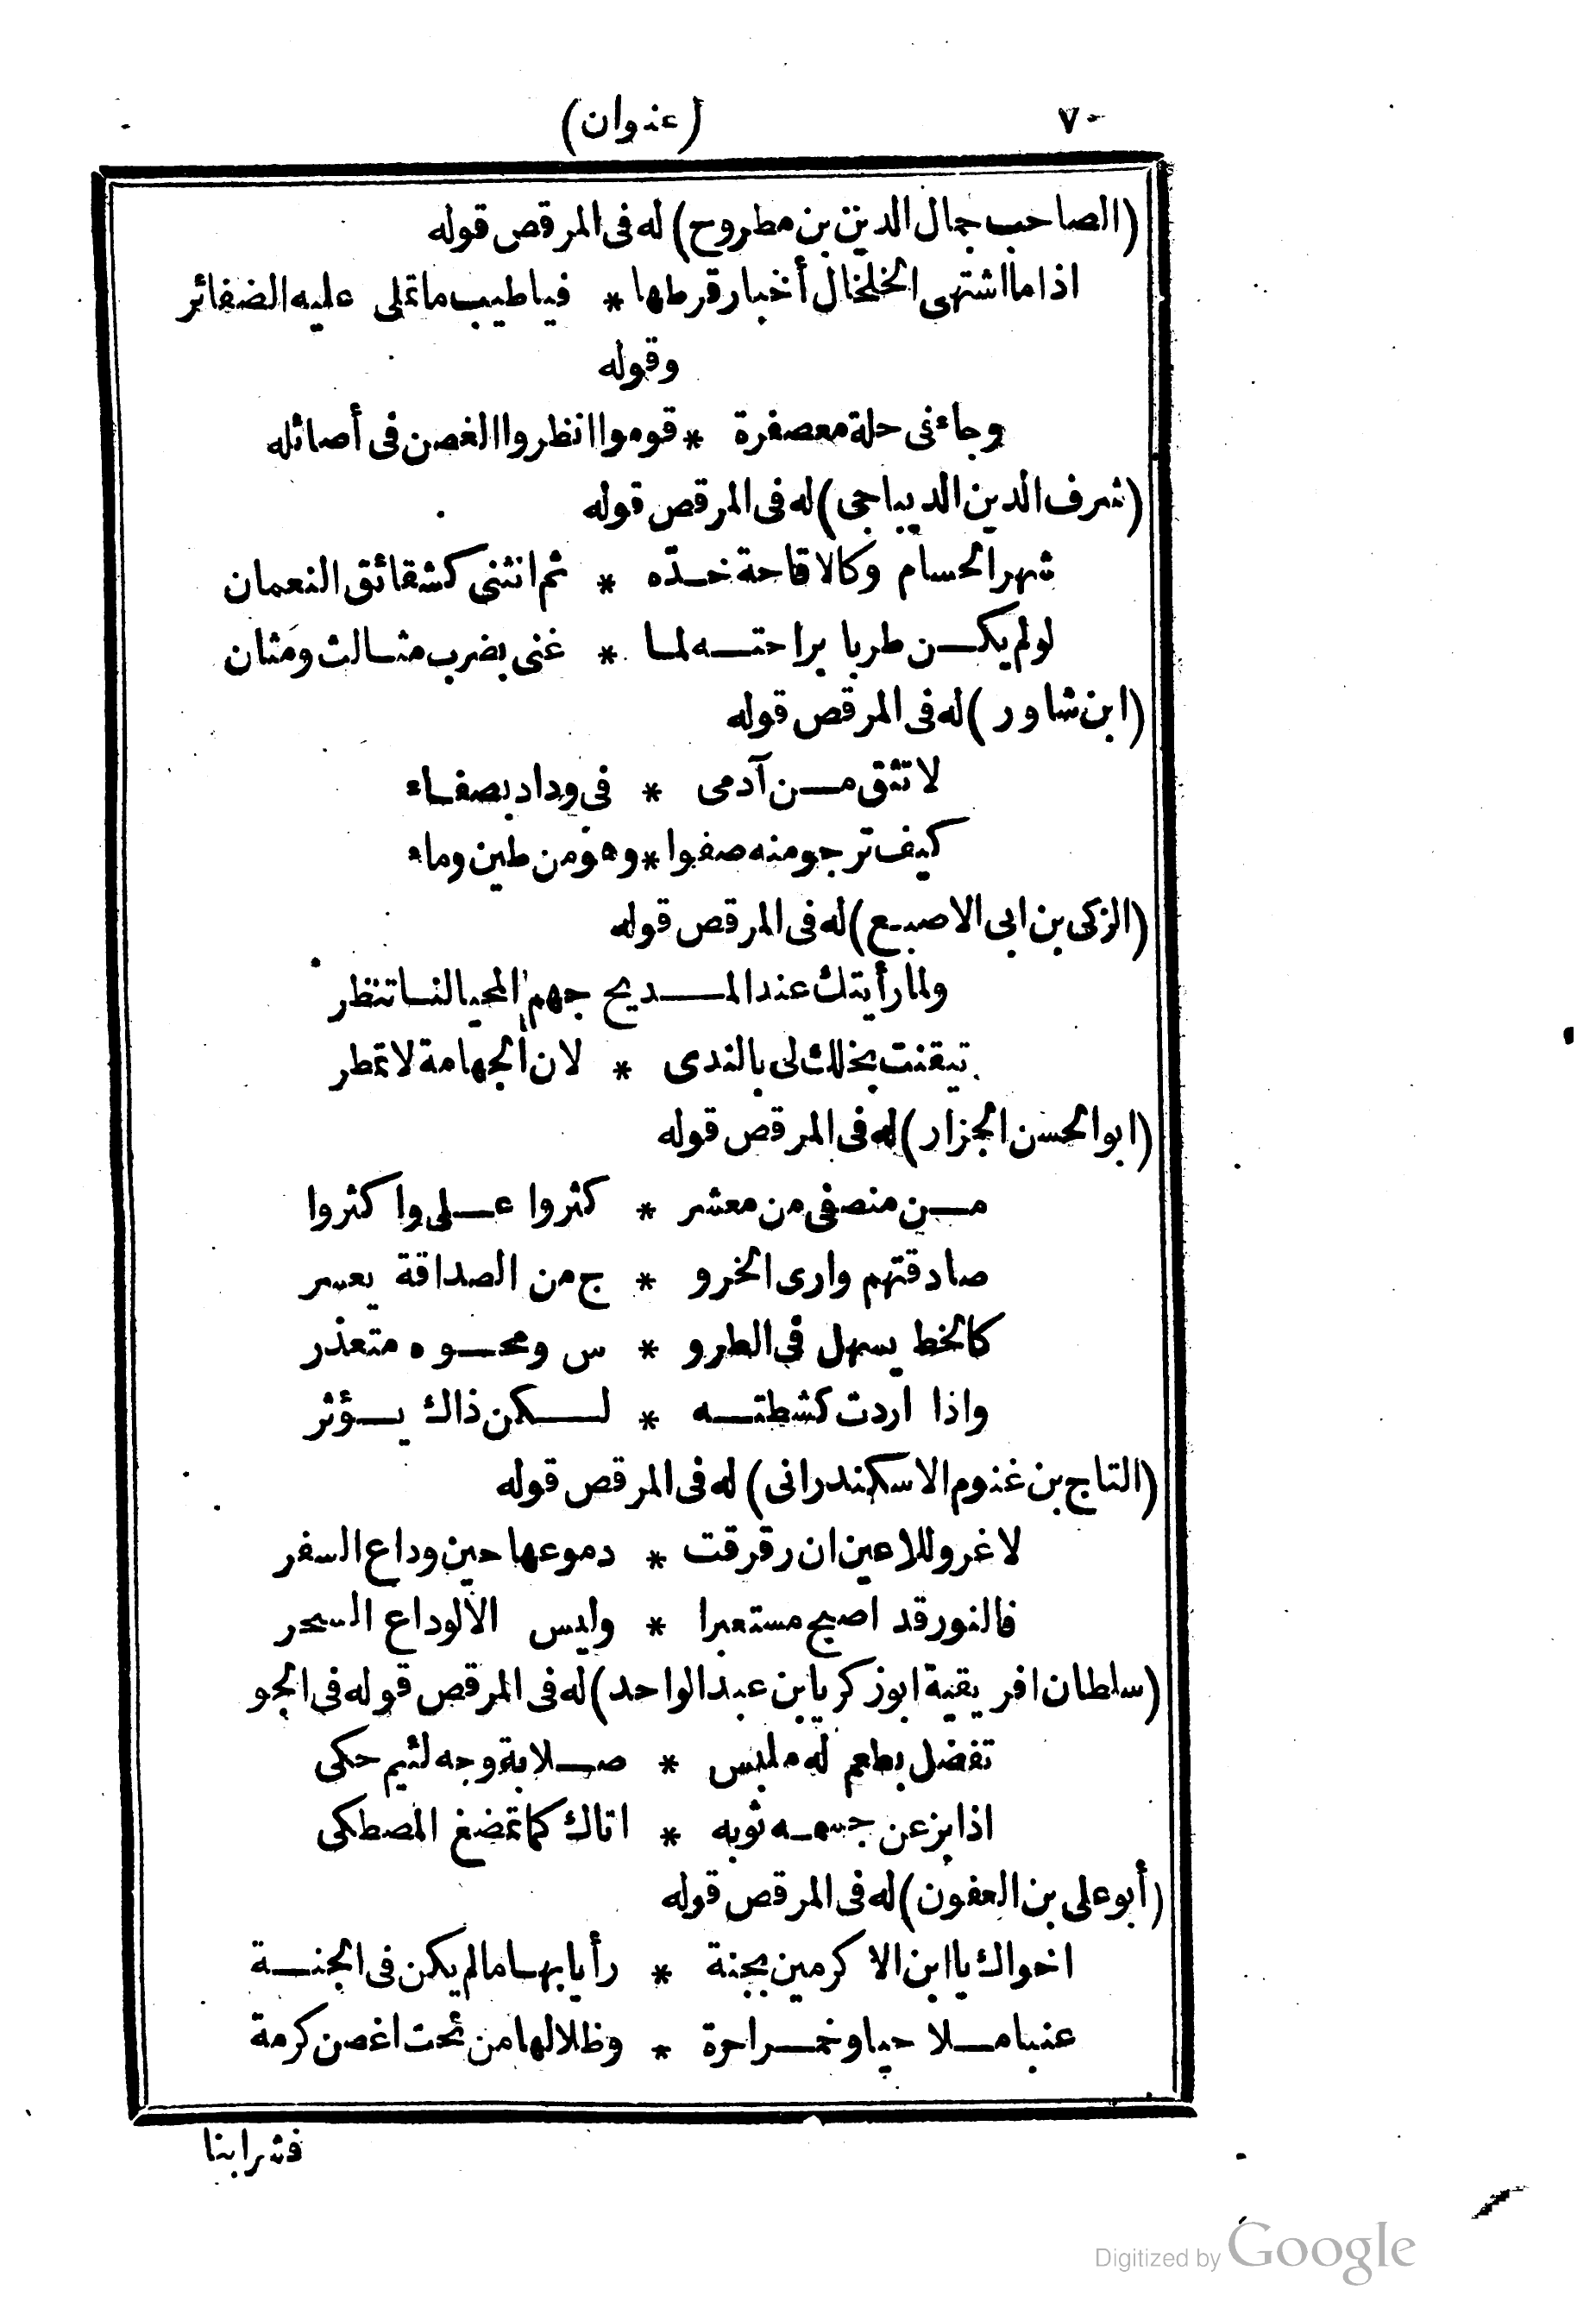 ٧٠ (عنوان)
(الصاحب جمال الدين بن مطروح) له فى المرقص قوله
اذا ما اشتهى الخلخال أخبار قرطها * فيا طيب ما تملى عليه الضفائر
وقوله
وجاء فى حلة معصفرة * قوموا انظروا الغصن فى أصائله
(شرف الدين الديباجى) له فى المرقص قوله
شهر الحسام وكالاقاحة خدّه * ثم انثنى كشقائق النعمان
لو لم يكن طربا براحته لما * غنى بضرب مثالث ومَثان
(ابن شاور) له فى المرقص قوله
لا تثق من آدمى * فى وداد بصفاء
كيف ترجو منه صفوا * وهو من طين وماء
(الزكى بن ابى الاصبع) له فى المرقص قوله
ولما رأيتك عند المديح جهم المحيا لنا تنظر
تيقنت بخلك لى بالندى * لان الجهامة لا تمطر
(ابو الحسن الجزار) له فى المرقص قوله
من منصفى من معشر * كثروا على واكثروا
صادقتهم وارى الخرو * ج من الصداقة يعسر
كالخط يسهل فى الطرو * س ومحوه متعذر
واذا اردت كشطته * لكن ذاك يؤثر
(التاج بن غنوم الاسكندرانى) له فى المرقص قوله
لا غرو للاعين ان رقرقت * دموعها حين وداع السفر
فالنور قد اصبح مستعبرا * وليس الا لوداع السحر
(سلطان افريقية ابو زكريا بن عبد الواحد) له فى المرقص قوله فى الجو
تفضل بطعم له ملبس * صلابة وجه لئيم حكى
اذا بز عن جسمه ثوبه * اتاك كما تمضغ المصطكى
(أبو على بن العفون) له فى المرقص قوله
اخواك يا ابن الاكرمين بجنة * رأيا بها ما لم يكن فى الجنة
عنبا ملاحيا وخمرا حرة * وظلالها من تحت اغصن كرمة
فشرابنا
Digitized by Google